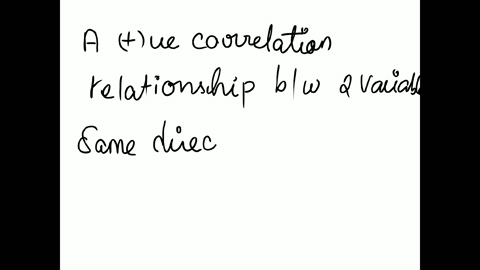 A (+)ue coorrelation
relationship b/w 2 variabl
Same direc